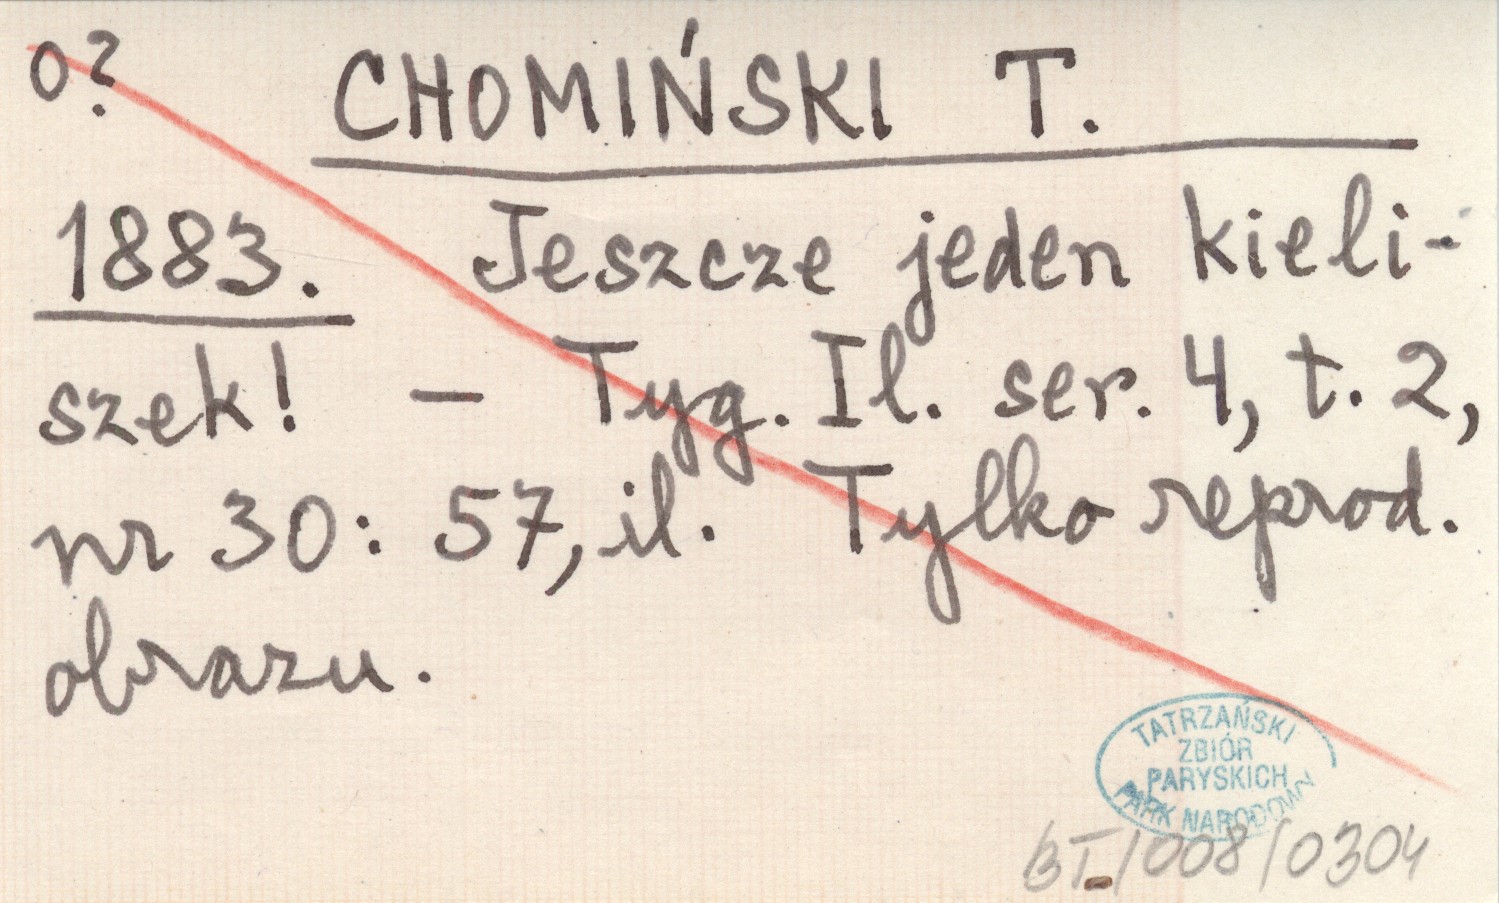 o?
CHOMIŃSKI T.
1883. Jeszcze jeden kieli-
szek! – Tyg. Il. ser. 4, t. 2,
nr 30: 57, il. Tylko reprod.
obrazu.
TATRZAŃSKI
ZBIÓR
PARYSKICH
PARK NARODOWY
BT/008/0304